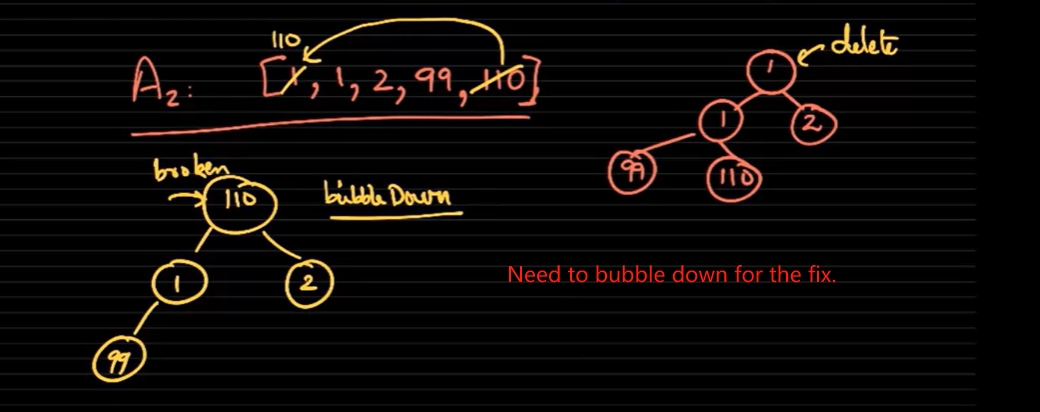 110
A2: [1, 1, 2, 99, 110]
delete
1
1
2
99
110
broken
110
bubbleDown
1
2
99
Need to bubble down for the fix.